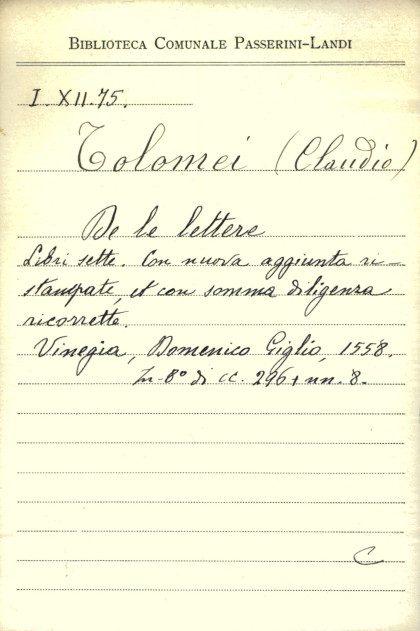 BIBLIOTECA COMUNALE PASSERINI-LANDI
I. XII.75.
Tolomei (Claudio)
De le lettere
Libri sette. Con nuova aggiunta ri-
stampate, et con somma diligenza
ricorrette.
Vinegia, Domenico Giglio, 1558.
In-8° di cc. 296 + nn. 8.
C